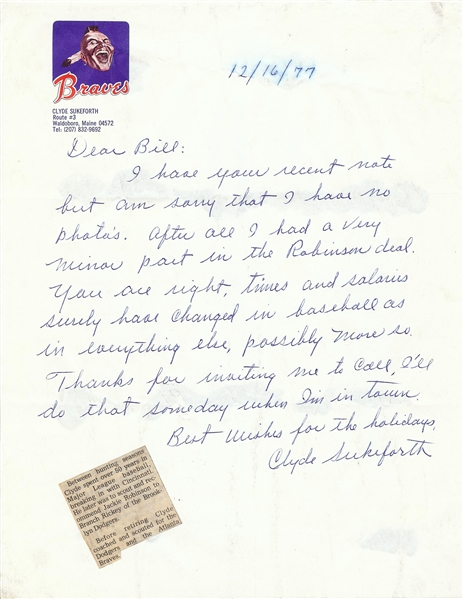 Braves
CLYDE SUKEFORTH
Route #3
Waldoboro, Maine 04572
Tel: (207) 832-9692
12/16/77
Dear Bill:
I have your recent note
but am sorry that I have no
photo's. After all I had a very
minor part in the Robinson deal.
You are right, times and salaries
surely have changed in baseball as
in everything else, possibly more so.
Thanks for inviting me to call, I'll
do that someday when I'm in town.
Best Wishes for the holidays.
Clyde Sukeforth
Between hunting seasons
Clyde spent over 50 years in
Major League baseball,
breaking in with Cincinnati.
He later was to scout and rec-
ommend Jackie Robinson to
Branch Rickey of the Brook-
lyn Dodgers.
Before retiring Clyde
coached and scouted for the
Dodgers and the Atlanta
Braves.